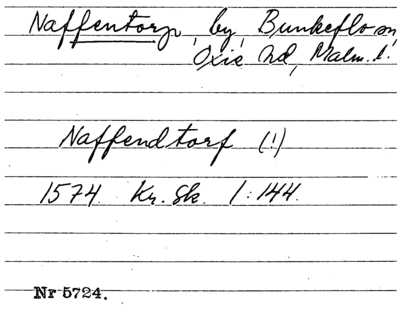 Naffentorp, by, Bunkeflo sn,
Oxie hd, Malm. l.
Naffendtorf (!)
1574 Kr. Sk. 1:144.
Nr 5724.